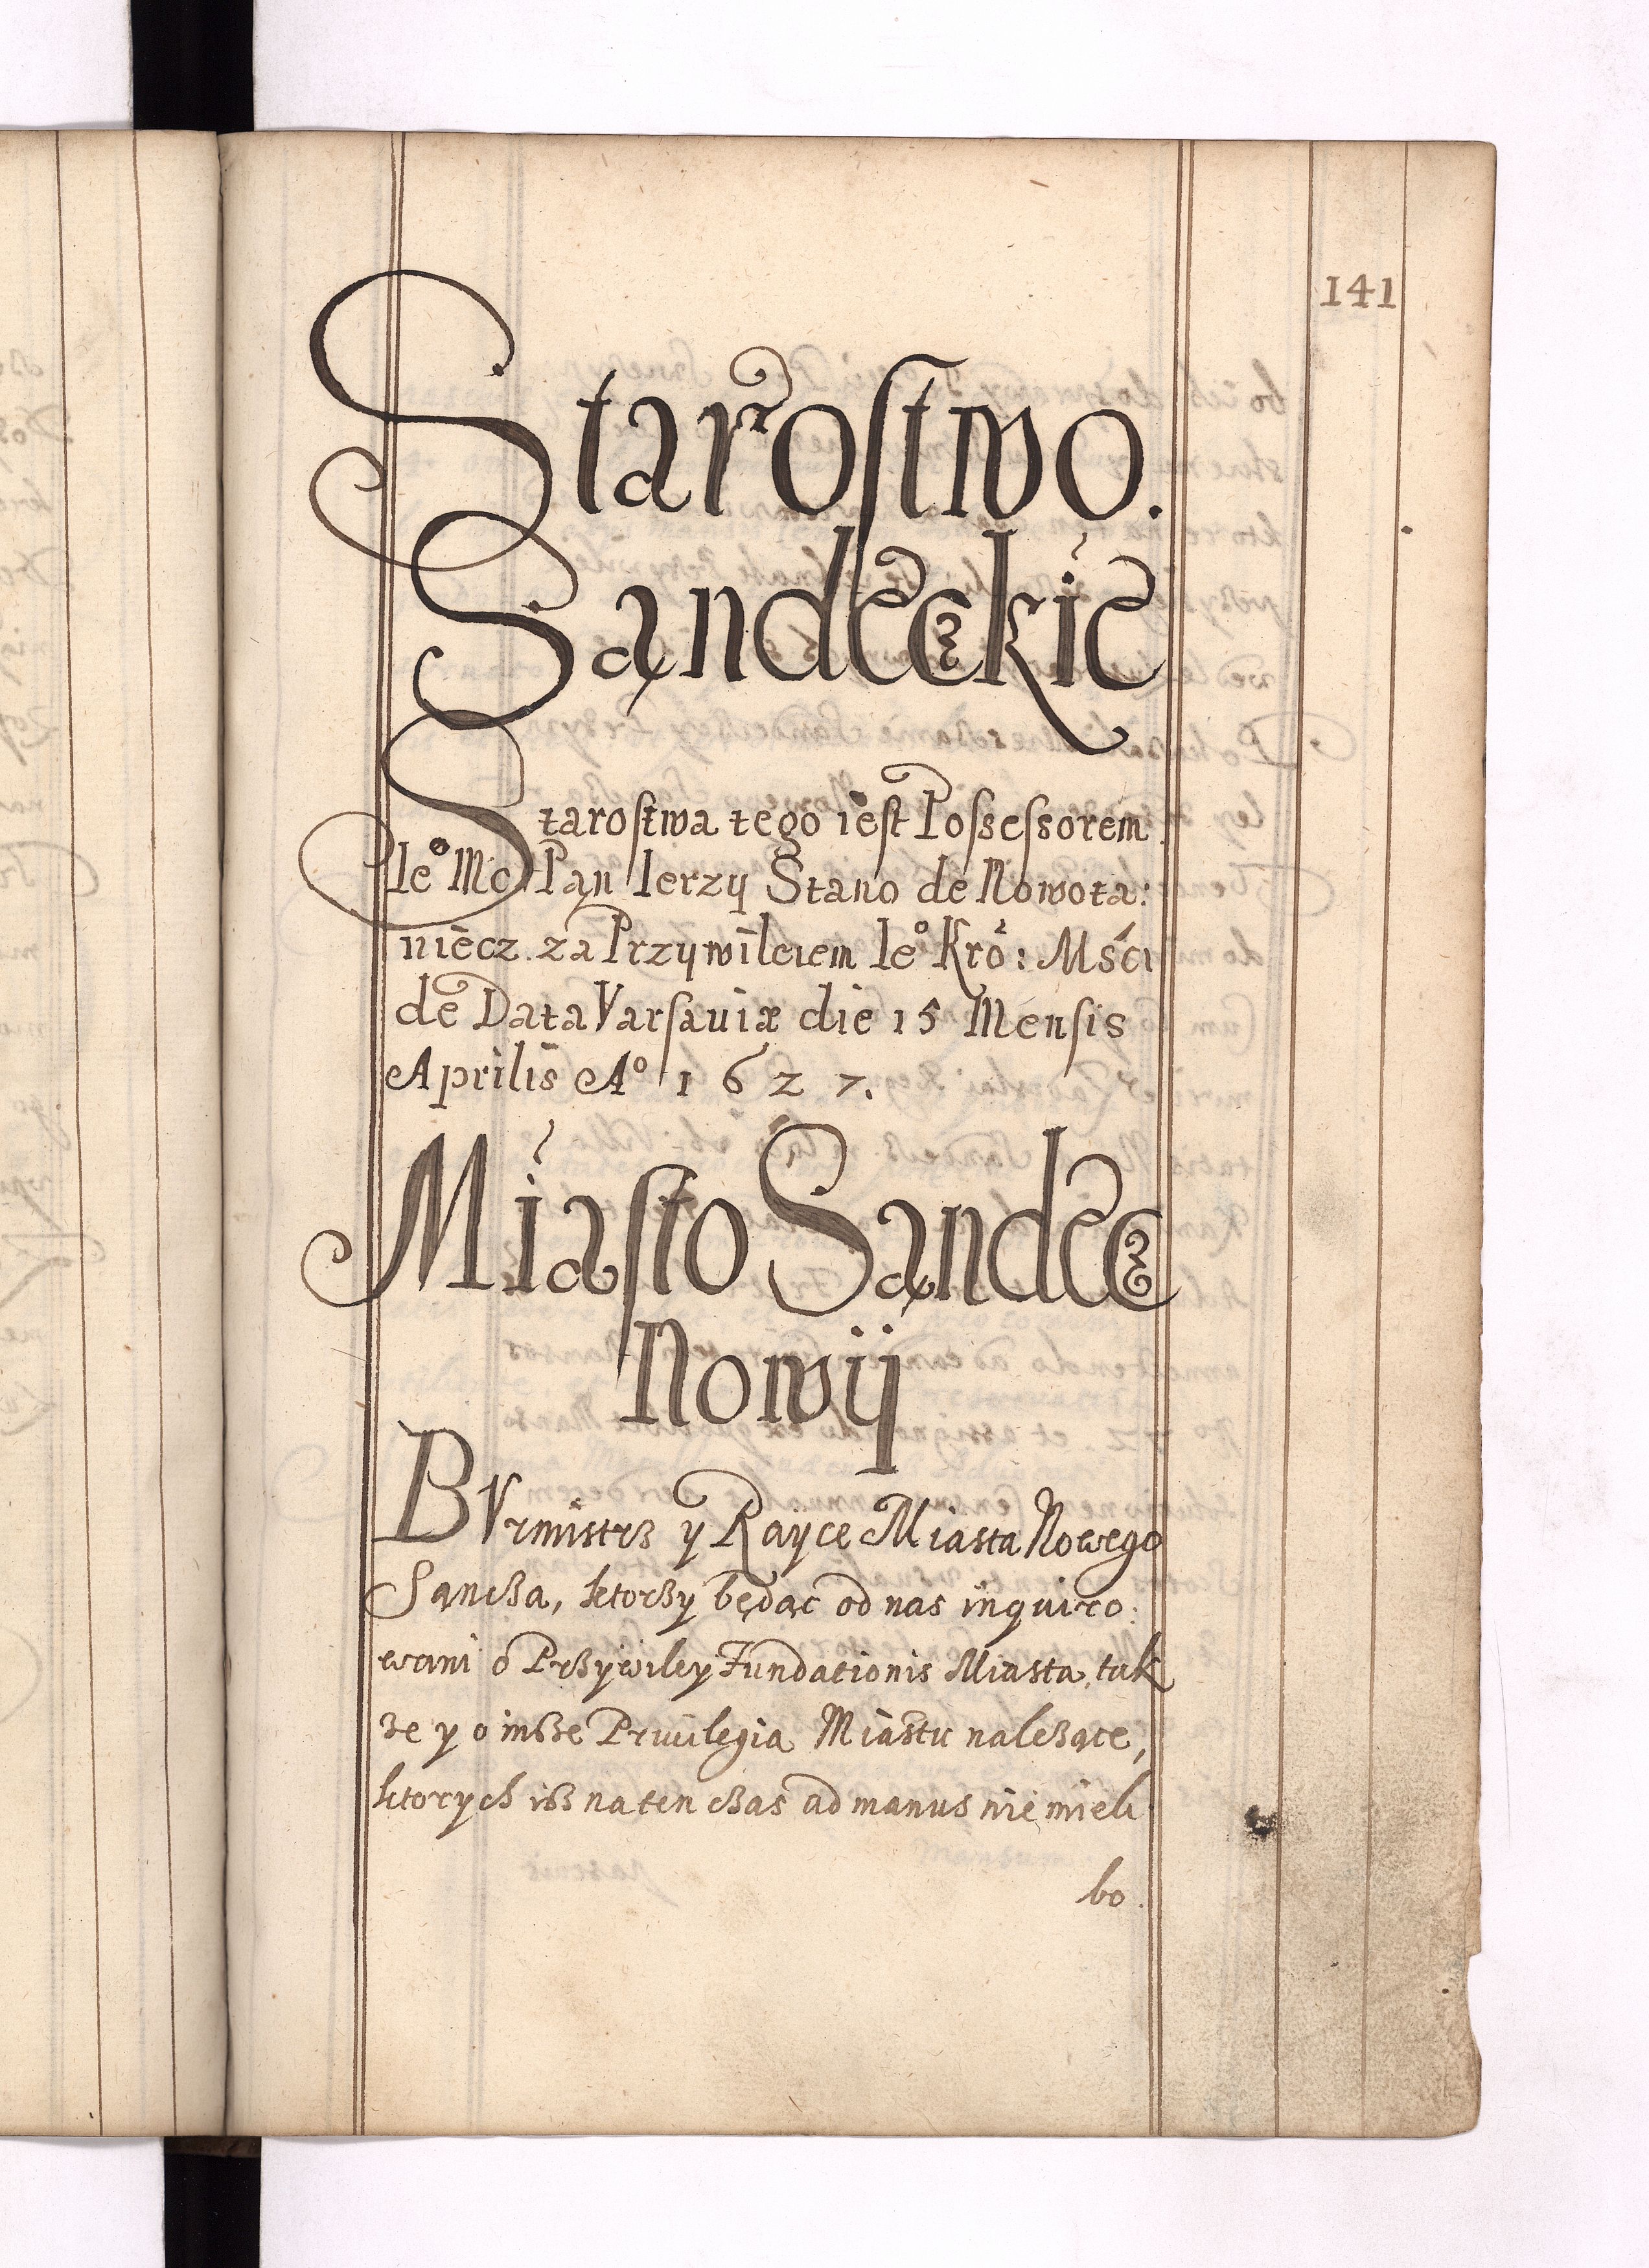 141
Starostwo.
Sandeckie
Starostwa tego iest Possessorem
Ie° Mć Pan Ierzy Stano de Nowota:
niecz. za Przywileiem Ie° Kró: Mści
de Data Varsauiæ die 15 Mensis
Aprilis A° 1627.
Miasto Sandec
Nowy
BVrmistrz y Rayce Miasta Nowego
Sącza, ktorzy będąc od nas inquiro:
wani o Przywiley Fundationis Miasta, tak
że y o insze Priuilegia Miastu należące,
ktorych isz na ten czas ad manus nie mieli
bo.